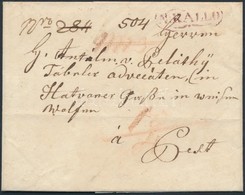 Nro 284 504 N. KALLO
Herrn
H. Antálm. v. Zelásky
Tabular advocaten, im
Hatvaner Gasse in weisen
Wolfen
á
Pest